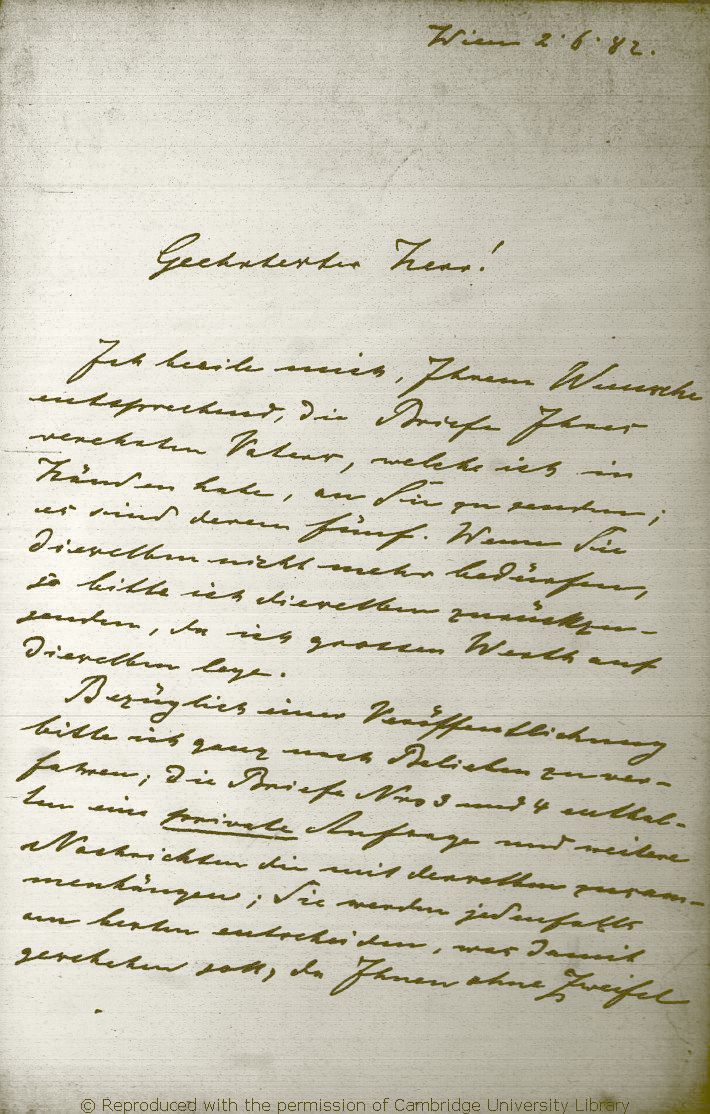 Wien 2. 6. 82.
Geehrtester Herr!
Ich beeile mich, Ihrem Wunsche
entsprechend, die Briefe Ihres
verehrten Vaters, welche ich in
Händen habe, an Sie zu senden;
es sind deren fünf. Wenn Sie
dieselben nicht mehr bedürfen,
so bitte ich dieselben zurückzu-
senden, da ich grossen Werth auf
dieselben lege.
Bezüglich einer Veröffentlichung
bitte ich ganz nach Belieben zu ver-
fahren; die Briefe Nro 3 und 4 enthal-
ten eine private Anfrage und weitere
Nachrichten die mit derselben zusam-
menhängen; Sie werden jedenfalls
am besten entscheiden, was damit
geschehen soll, da Ihnen ohne Zweifel
© Reproduced with the permission of Cambridge University Library